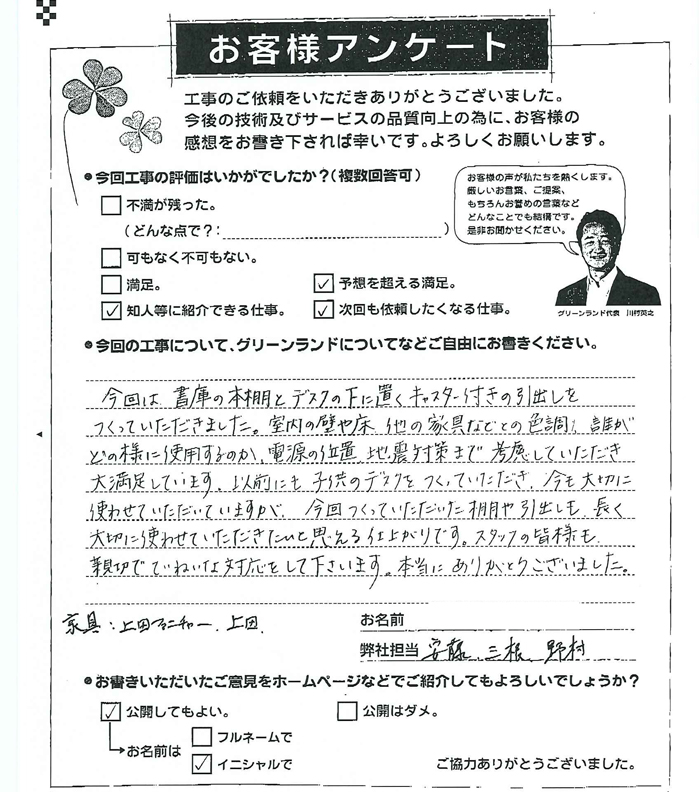 お客様アンケート
工事のご依頼をいただきありがとうございました。
今後の技術及びサービスの品質向上の為に、お客様の
感想をお書き下されば幸いです。よろしくお願いします。
今回工事の評価はいかがでしたか?(複数回答可)
不満が残った。
(どんな点で?: )
可もなく不可もない。
満足。
予想を超える満足。
知人等に紹介できる仕事。
次回も依頼したくなる仕事。
お客様の声が私たちを熱くします。
厳しいお言葉、ご提案、
もちろんお誉めの言葉など
どんなことでも結構です。
是非お聞かせください。
グリーンランド代表 川村英之
今回の工事について、グリーンランドについてなどご自由にお書きください。
今回は、書庫の本棚とデスクの下に置くキャスター付きの引出しを
つくっていただきました。室内の壁や床、他の家具などとの色調、誰が
どの様に使用するのか、電源の位置、地震対策まで考慮していただき
大満足しています。以前にも子供のデスクをつくっていただき、今も大切に
使わせていただいていますが、今回つくっていただいた棚や引出しも、長く
大切に使わせていただきたいと思える仕上がりです。スタッフの皆様も、
親切でていねいな対応をして下さいます。本当にありがとうございました。
家具:上田ファニチャー 上田
お名前
弊社担当 安藤 三根 野村
お書きいただいたご意見をホームページなどでご紹介してもよろしいでしょうか?
公開してもよい。
公開はダメ。
お名前は
フルネームで
イニシャルで
ご協力ありがとうございました。